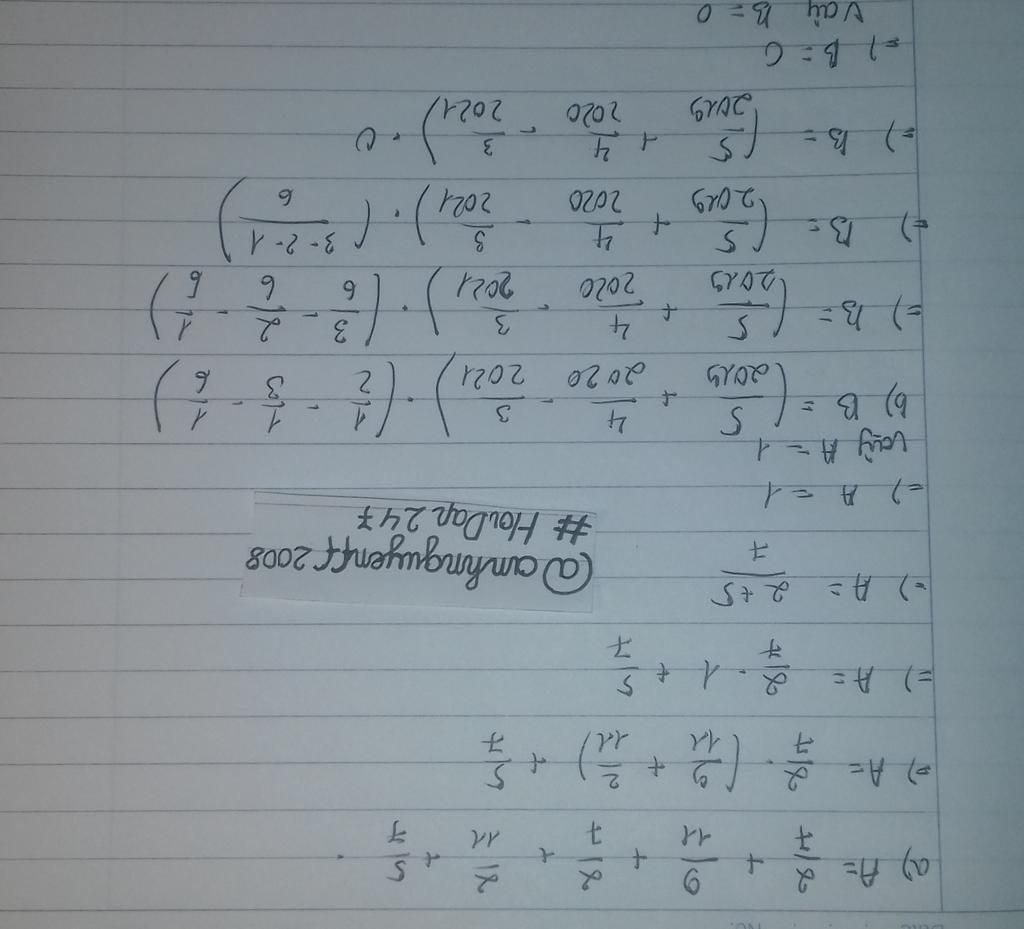 a) A = 2/7 + 9/11 + 2/7 + 2/11 + 5/7 .
=) A = 2/7 . (9/11 + 2/11) + 5/7
=) A = 2/7 . 1 + 5/7
=) A = (2+5)/7
@anhnguyenff2008
# HoiDap247
=) A = 1
vậy A = 1
b) B = (5/2019 + 4/2020 - 3/2021) . (1/2 - 1/3 - 1/6)
=) B = (5/2019 + 4/2020 - 3/2021) . (3/6 - 2/6 - 1/6)
=) B = (5/2019 + 4/2020 - 3/2021) . ((3-2-1)/6)
=) B = (5/2019 + 4/2020 - 3/2021) . 0
=) B = 0
Vậy B = 0